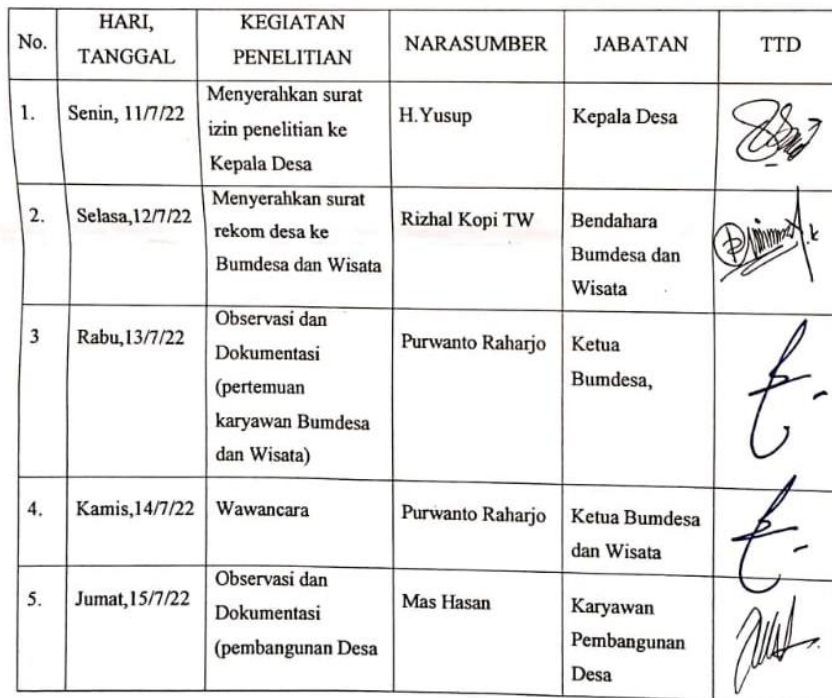 No. HARI, TANGGAL KEGIATAN PENELITIAN NARASUMBER JABATAN TTD
1. Senin, 11/7/22 Menyerahkan surat izin penelitian ke Kepala Desa H.Yusup Kepala Desa
2. Selasa,12/7/22 Menyerahkan surat rekom desa ke Bumdesa dan Wisata Rizhal Kopi TW Bendahara Bumdesa dan Wisata
3 Rabu,13/7/22 Observasi dan Dokumentasi (pertemuan karyawan Bumdesa dan Wisata) Purwanto Raharjo Ketua Bumdesa,
4. Kamis,14/7/22 Wawancara Purwanto Raharjo Ketua Bumdesa dan Wisata
5. Jumat,15/7/22 Observasi dan Dokumentasi (pembangunan Desa Mas Hasan Karyawan Pembangunan Desa